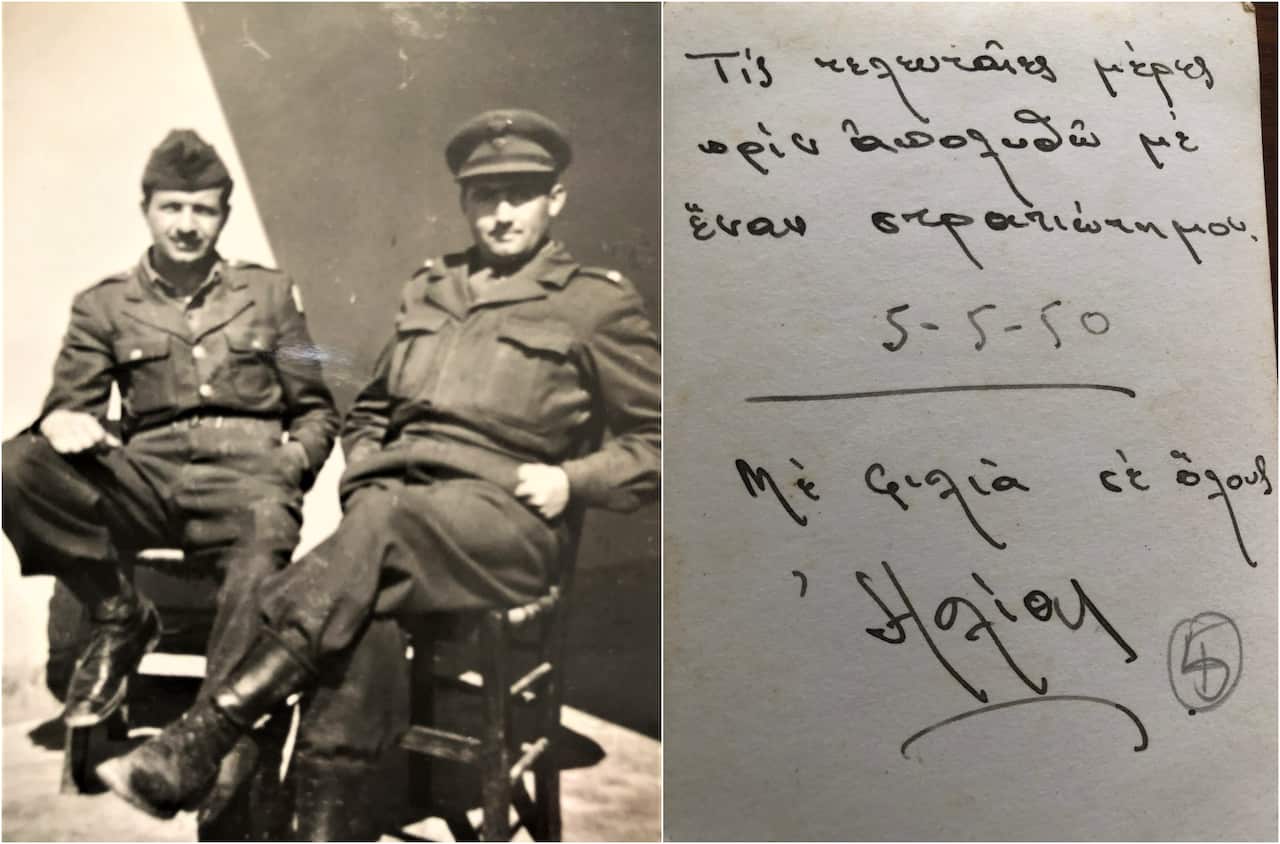 Τίς τελευταῖες μέρες
πρίν ἀπολυθῶ μέ
ἕναν στρατιώτη μου.
5-5-50
Μέ φιλιά σέ ὅλους
Ἠλίας
5